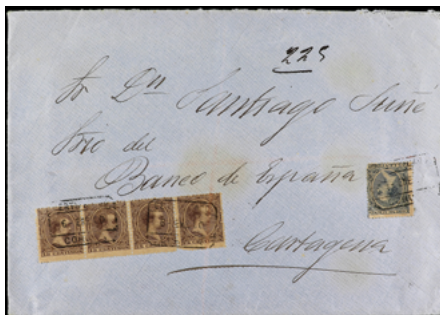 225
Sr Dn Santiago Suñé
Srio del
Banco de España
Cartagena